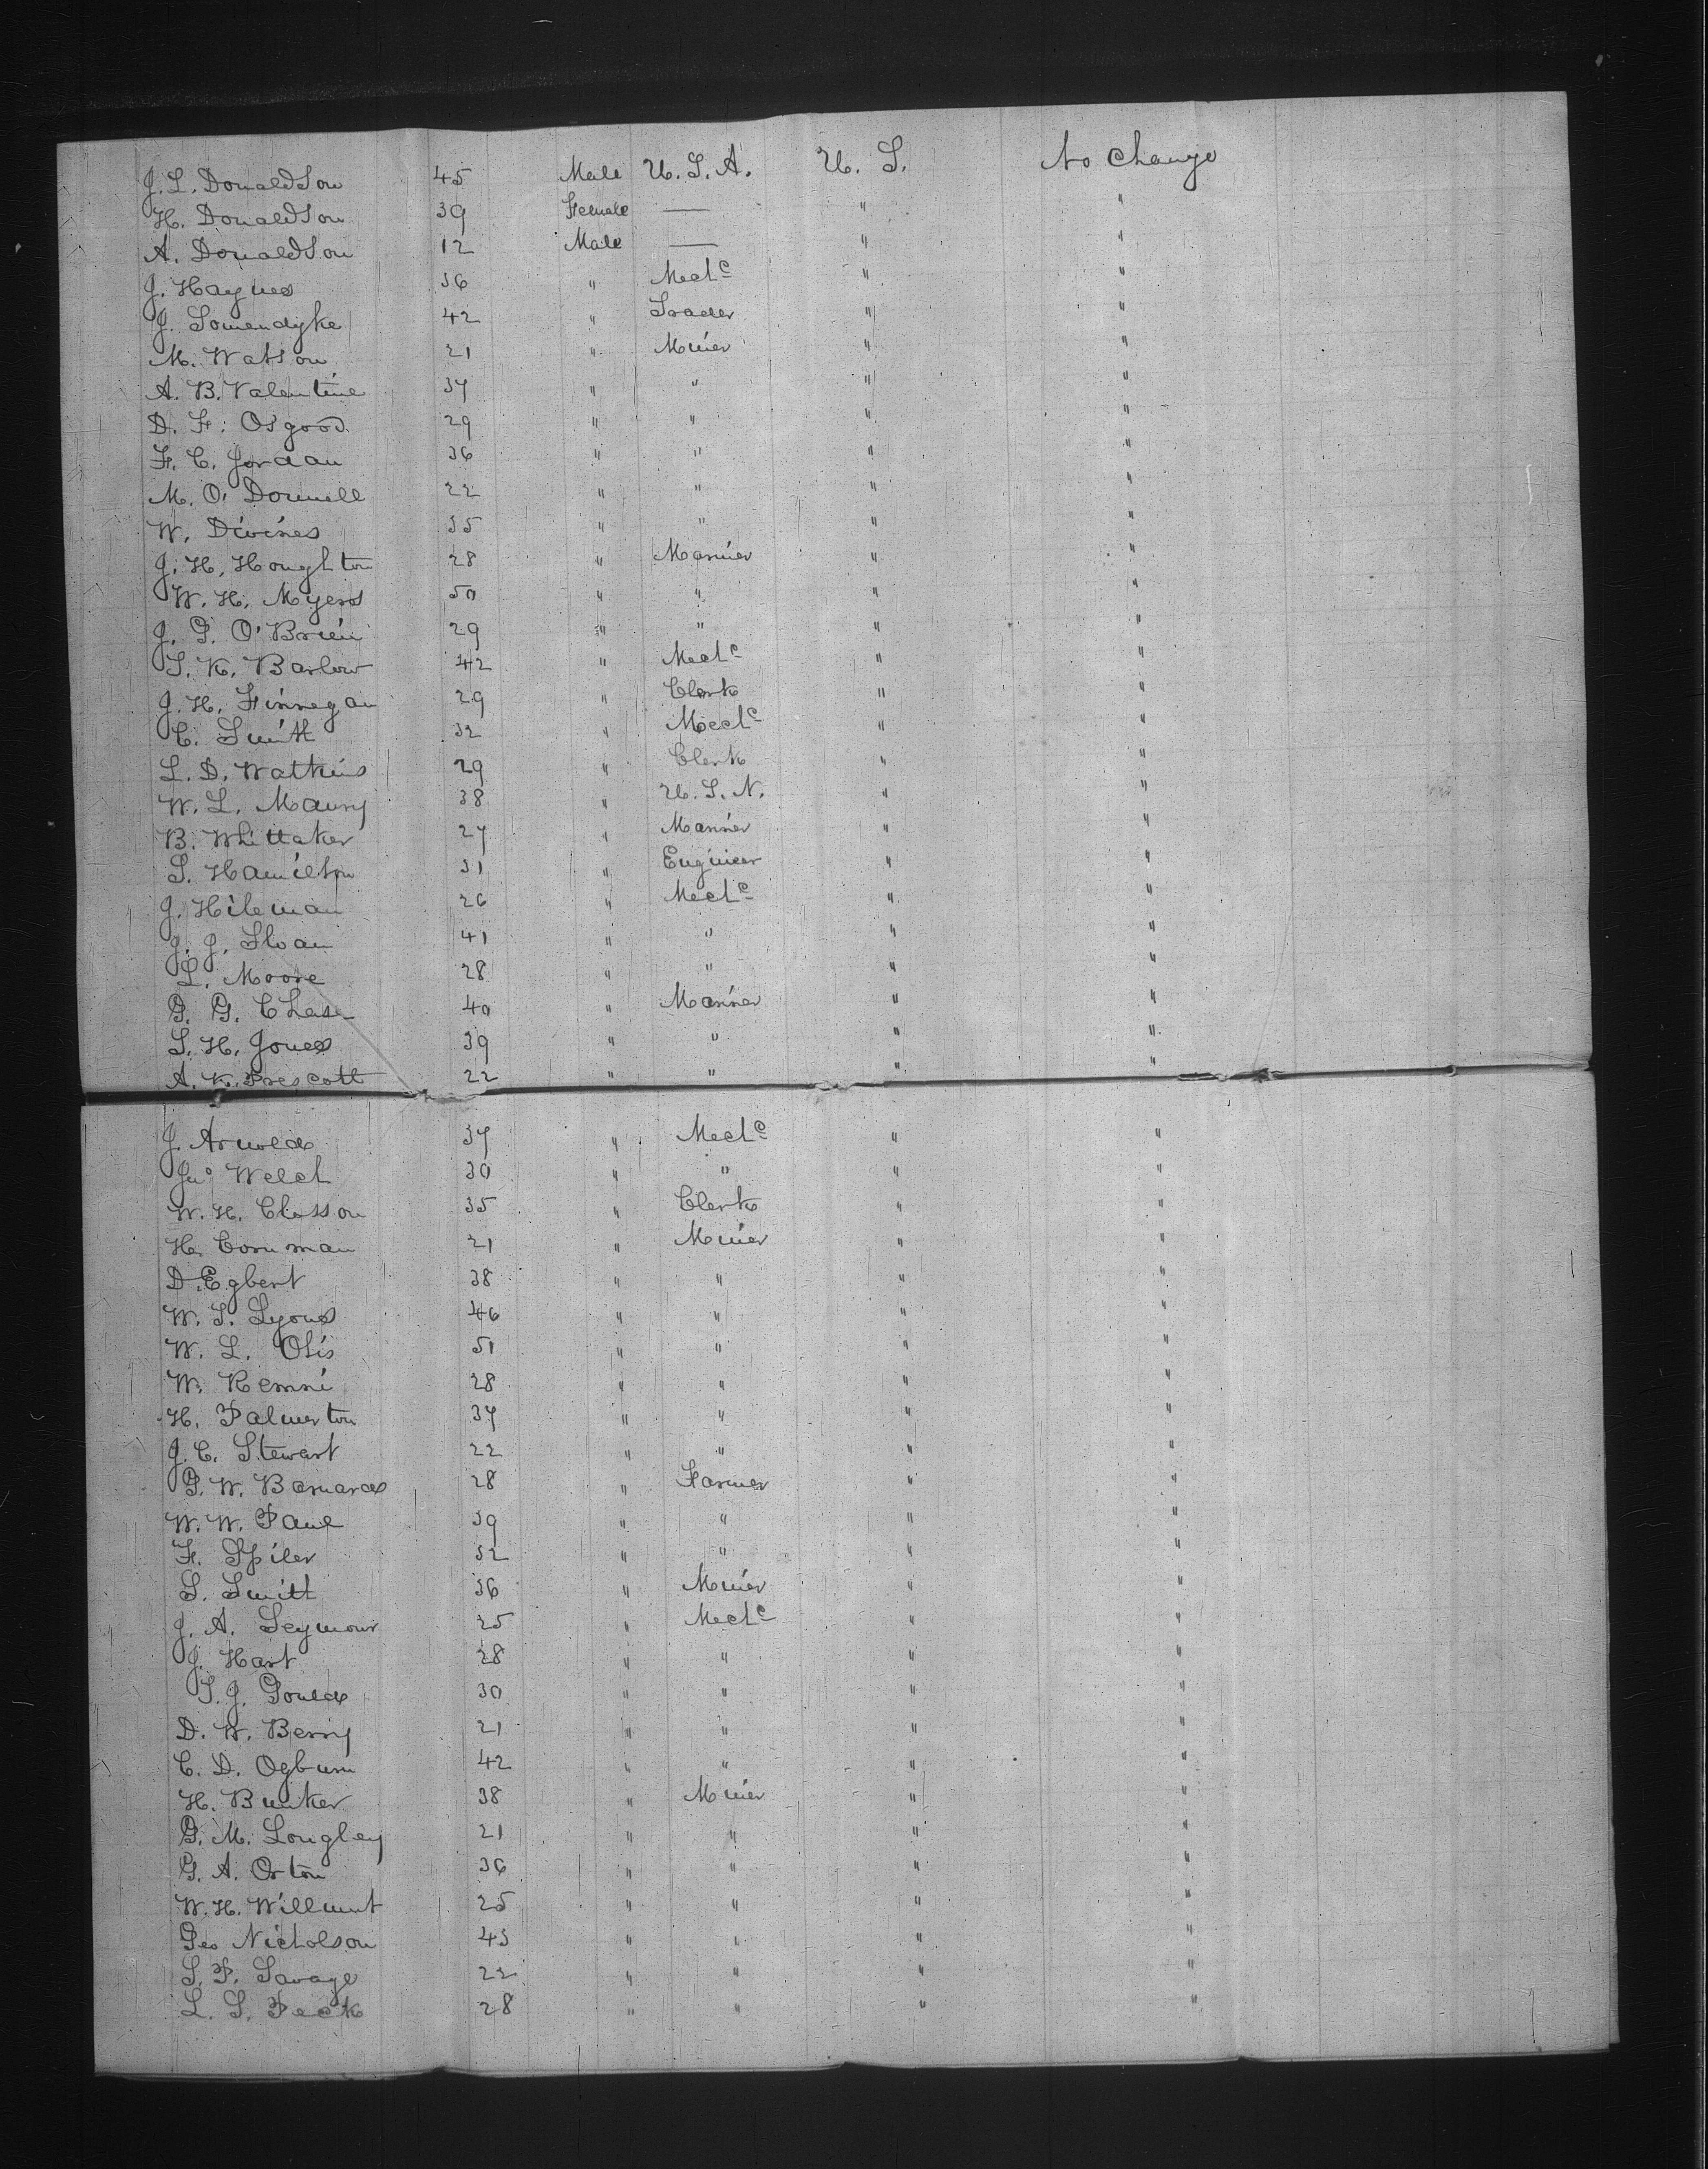 J. L. Donaldson 45 Male U.S.A. U. S. No Change
H. Donaldson 39 Female — " "
A. Donaldson 12 Male — " "
J. Haynes 36 " Mechc " "
J. Somendyke 42 " Trader " "
M. Watson 21 " Miner " "
A. B. Valentine 37 " " " "
D. F. Osgood 29 " " " "
F. C. Jordan 36 " " " "
M. O'Donnell 22 " " " "
W. Divines 35 " " " "
J. H. Houghton 28 " Mariner " "
W. H. Myers 50 " " " "
J. G. O'Brien 29 " " " "
S. K. Barlow 42 " Mechc " "
J. H. Finnegan 29 " Clerk " "
C. Smith 32 " Mechc " "
L. D. Watkins 29 " Clerk " "
W. L. Maury 38 " U.S.N. " "
B. Whittaker 27 " Mariner " "
S. Hamilton 31 " Engineer " "
J. Hileman 26 " Mechc " "
J. J. Sloan 41 " " " "
L. Moore 28 " " " "
G. G. Chase 40 " Mariner " "
S. H. Jones 39 " " " "
A. K. Prescott 22 " " " "
J. Arnold 37 " Mechc " "
Jno Welch 30 " " " "
W. H. Closson 35 " Clerk " "
H. Cornman 21 " Miner " "
D. Egbert 38 " " " "
W. S. Lyons 46 " " " "
W. L. Otis 51 " " " "
W. Remni 28 " " " "
H. Palmerton 37 " " " "
J. C. Stewart 22 " " " "
G. W. Barnard 28 " Farmer " "
W. W. Paul 39 " " " "
F. Spiler 32 " " " "
S. Smith 36 " Miner " "
J. A. Seymour 25 " Mechc " "
J. Hart 28 " " " "
S. J. Gould 30 " " " "
D. W. Berry 21 " " " "
C. D. Ogburn 42 " " " "
H. Bunker 38 " Miner " "
G. M. Longley 21 " " " "
G. A. Orton 36 " " " "
W. H. Willmut 25 " " " "
Geo Nicholson 43 " " " "
S. P. Savage 22 " " " "
L. S. Peck 28 " " " "